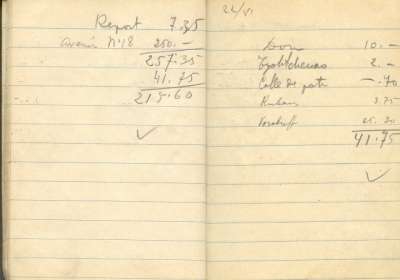 Report 7.35
N°18 250.-
257.35
41.75
215.60
24/VI
10.-
2.-
Colle de pate -.70
Ruban 3.75
25.30
41.75